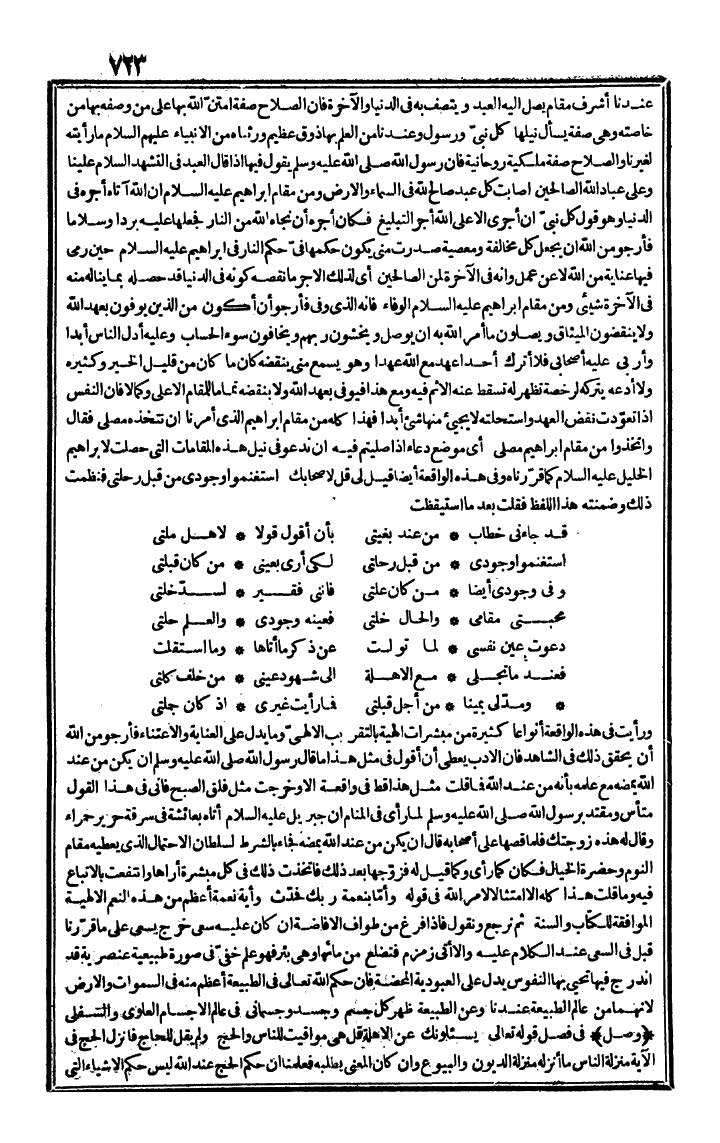 ٧٢٣
عندنا أشرف مقام يصل اليه العبد ويتصف به فى الدنيا والآخرة فان الصلاح صفة امتنّ الله بها على من وصفه بها من
خاصته وهى صفة يسأل نيلها كل نبىّ ورسول وعندنا من العلم بها ذوق عظيم ورثناه من الانبياء عليهم السلام ما رأيته
لغيرنا والصلاح صفة ملكية روحانية فان رسول الله صلى الله عليه وسلم يقول فيها اذا قال العبد فى التشهد السلام علينا
وعلى عباد الله الصالحين اصابت كل عبد صالح لله فى السماء والارض ومن مقام ابراهيم عليه السلام ان الله آتاه أجره فى
الدنيا وهو قول كل نبىّ ان أجرى الا على الله أجر التبليغ فكان أجره أن نجاه الله من النار فجعلها عليه بردا وسلاما
فأرجو من الله ان يجعل كل مخالفة ومعصية صدرت منى يكون حكمها فىّ حكم النار فى ابراهيم عليه السلام حين رمى
فيها عناية من الله لا عن عمل وانه فى الآخرة لمن الصالحين أى لذلك الاجر ما نقصه كونه فى الدنيا قد حصله بما يناله منه
فى الآخرة شيئى ومن مقام ابراهيم عليه السلام الوفاء فانه الذى وفى فأرجو أن أكون من الذين يوفون بعهد الله
ولا ينقضون الميثاق ويصلون ما أمر الله به ان يوصل ويخشون ربهم ويخافون سوء الحساب وعليه أدل الناس أبدا
وأربى عليه أصحابى فلا أترك أحدا عهد مع الله عهدا وهو يسمع منى ينقضه كان ما كان من قليل الخير وكثيره
ولا أدعه يتركه لرخصة تظهر له تسقط عنه الاثم فيه ومع هذا فيوفى بعهد الله ولا ينقضه تماما للمقام الاعلى وكمالا فان النفس
اذا تعوّدت نقض العهد واستحلته لا يجىء منها شئ أبدا فهذا كله من مقام ابراهيم الذى أمرنا ان نتخذه مصلى فقال
واتخذوا من مقام ابراهيم مصلى أى موضع دعاء اذا صليتم فيه ان تدعو فى نيل هذه المقامات التى حصلت لابراهيم
الخليل عليه السلام كما قرّرناه وفى هذه الواقعة أيضا قيل لى قل لاصحابك استغنموا وجودى من قبل رحلتى فنظمت
ذلك وضمنته هذا اللفظ فقلت بعد ما استيقظت
قد جاءنى خطاب * من عند بغيتى بأن أقول قولا * لاهل ملتى
استغنموا وجودى * من قبل رحلتى لكى أرى بعينى * من كان قبلتى
وفى وجودى أيضا * من كان علتى فاننى فقير * لسدّ خلتى
محبتى مقامى * والحال خلتى فعينه وجودى * والعلم حلتى
دعوت عين نفسى * لما تولت عن ذكر ما أتاها * وما استقلت
فعند ما تجلى * مع الاهلة الى شهود عينى * من خلف كلتى
* ومدّ لى يمينا * من أجل قبلتى فما رأيت غيرى * اذ كان جلتى
ورأيت فى هذه الواقعة أنواعا كثيرة من مبشرات الهية بالتقريب الالهىّ وما يدل على العناية والاعتناء فأرجو من الله
أن يحقق ذلك فى الشاهد فان الادب يعطى أن أقول فى مثل هذا ما قال رسول الله صلى الله عليه وسلم ان يكن من عند
الله يمضه مع علمه بأنه من عند الله فما قلت مثل هذا قط فى واقعة الا وخرجت مثل فلق الصبح فانى فى هذا القول
متأس ومقتد برسول الله صلى الله عليه وسلم لما رأى فى المنام ان جبريل عليه السلام أتاه بعائشة فى سرقة حرير حمراء
وقال له هذه زوجتك فلما قصها على أصحابه قال ان يكن من عند الله يمضه فجاء بالشرط لسلطان الاحتمال الذى يعطيه مقام
النوم وحضرة الخيال فكان كما رأى وكما قيل له فزوّجها بعد ذلك فاتخذت ذلك فى كل مبشرة أراها وانتفعت بالاتباع
فيه وما قلت هذا كله الا امتثالا لامر الله فى قوله وأما بنعمة ربك فحدّث وأية نعمة أعظم من هذه النعم الالهية
الموافقة للكتاب والسنة ثم نرجع ونقول فاذا فرغ من طواف الافاضة ان كان عليه سعى خرج يسعى على ما قرّرنا
قبل فى السعى عند الكلام عليه والا أتى زمزم فتضلع من مائها وهى بئر فهو علم خفىّ فى صورة طبيعية عنصرية قد
اندرج فيها تحيى بها النفوس يدل على العبودية المحضة فان حكم الله تعالى فى الطبيعة أعظم منه فى السموات والارض
لانهما من عالم الطبيعة عندنا وعن الطبيعة ظهر كل جسم وجسد وجسمانى فى عالم الاجسام العلوى والسفلى
﴿وصل﴾ فى فصل قوله تعالى يسئلونك عن الاهلة قل هى مواقيت للناس والحج ولم يقل للحاج فانزل الحج فى
الآية منزلة الناس ما أنزله منزلة الديون والبيوع وان كان المعنى يطلبه فعلمنا ان حكم الحج عند الله ليس حكم الاشياء التى